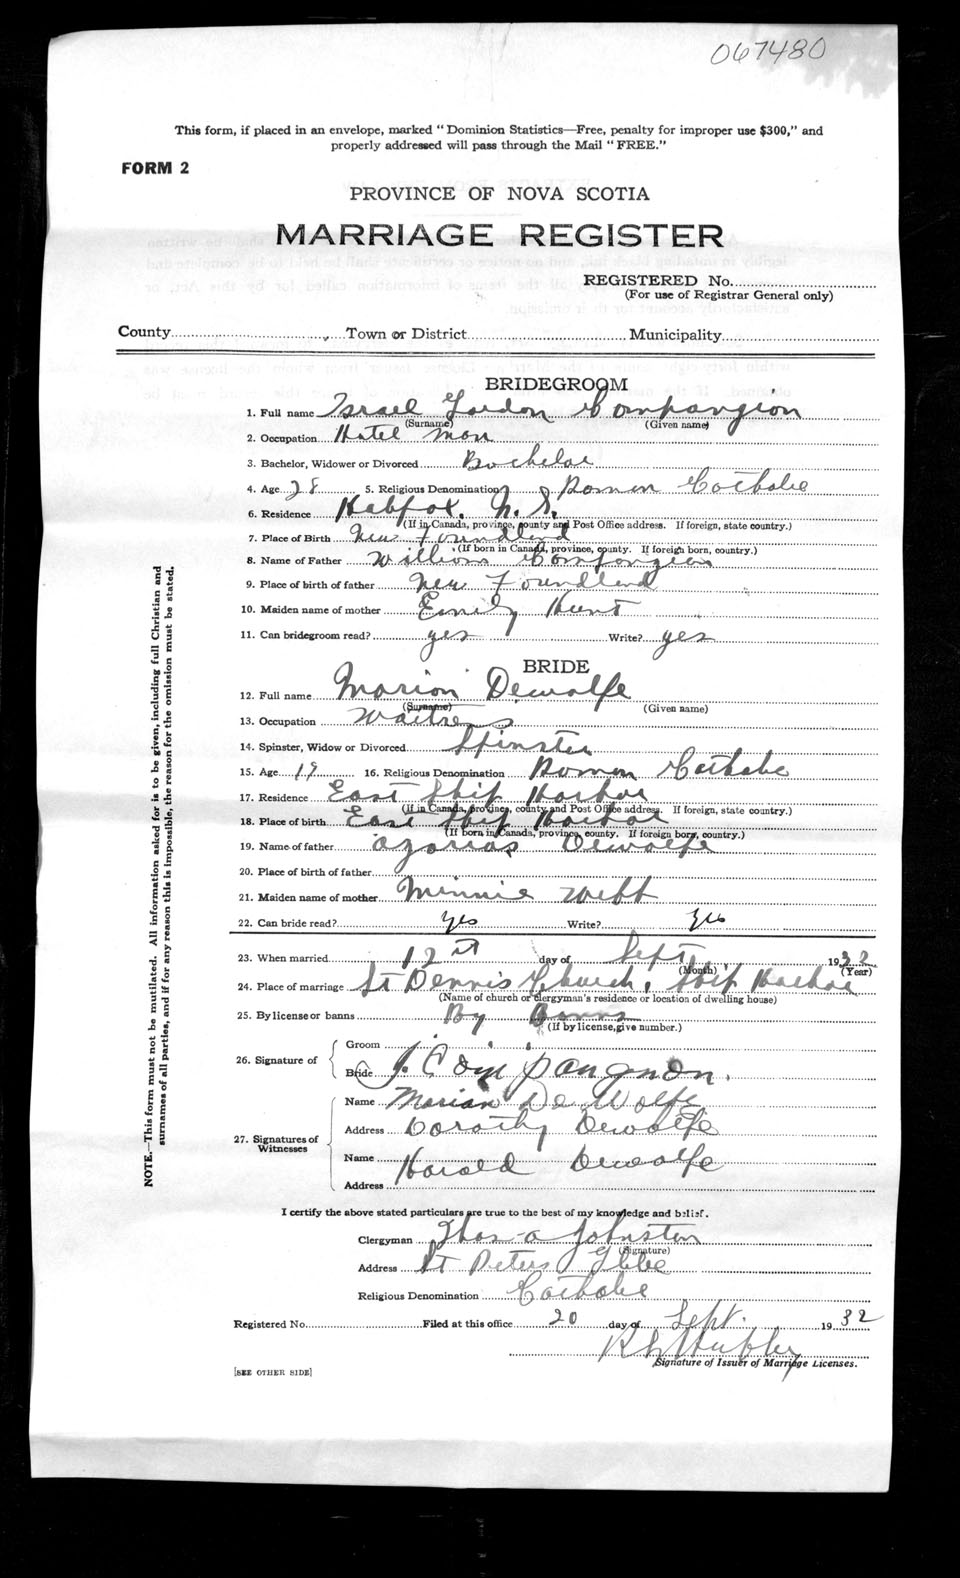 067480
This form, if placed in an envelope, marked "Dominion Statistics—Free, penalty for improper use $300," and
properly addressed will pass through the Mail "FREE."
FORM 2
PROVINCE OF NOVA SCOTIA
MARRIAGE REGISTER
REGISTERED No.
(For use of Registrar General only)
County Town or District Municipality
BRIDEGROOM
1. Full name Israel Gordon Compangion
(Surname) (Given name)
2. Occupation Hotel man
3. Bachelor, Widower or Divorced Bachelor
4. Age 28 5. Religious Denomination Roman Catholic
6. Residence Halifax, N. S.
(If in Canada, province, county and Post Office address. If foreign, state country.)
7. Place of Birth New Foundland
(If born in Canada, province, county. If foreign born, country.)
8. Name of Father William Compangion
9. Place of birth of father New Foundland
10. Maiden name of mother Emily Hunt
11. Can bridegroom read? yes Write? yes
BRIDE
12. Full name Marion Dewolfe
(Surname) (Given name)
13. Occupation Waitress
14. Spinster, Widow or Divorced Spinster
15. Age 19 16. Religious Denomination Roman Catholic
17. Residence East Ship Harbor
(If in Canada, province, county and Post Office address. If foreign, state country.)
18. Place of birth East Ship Harbor
(If born in Canada, province, county. If foreign born, country.)
19. Name of father Azarias Dewolfe
20. Place of birth of father
21. Maiden name of mother Minnie Webb
22. Can bride read? Yes Write? Yes
23. When married 12 day of Sept 1932
(Month) (Year)
24. Place of marriage St Dennis Church, Ship Harbor
(Name of church or clergyman's residence or location of dwelling house)
25. By license or banns By Banns
(If by license, give number.)
26. Signature of Groom
Bride J. Compangnon.
27. Signatures of Witnesses Name Marian DeWolfe
Address Dorothy Dewolfe
Name Harold Dewolfe
Address
I certify the above stated particulars are true to the best of my knowledge and belief.
Clergyman Thos a Johnston
(Signature)
Address St Peters Glebe
Religious Denomination Catholic
Registered No. Filed at this office 20 day of Sept. 1932
Signature of Issuer of Marriage Licenses.
[SEE OTHER SIDE]
NOTE.—This form must not be mutilated. All information asked for is to be given, including full Christian and
surnames of all parties, and if for any reason this is impossible, the reason for the omission must be stated.